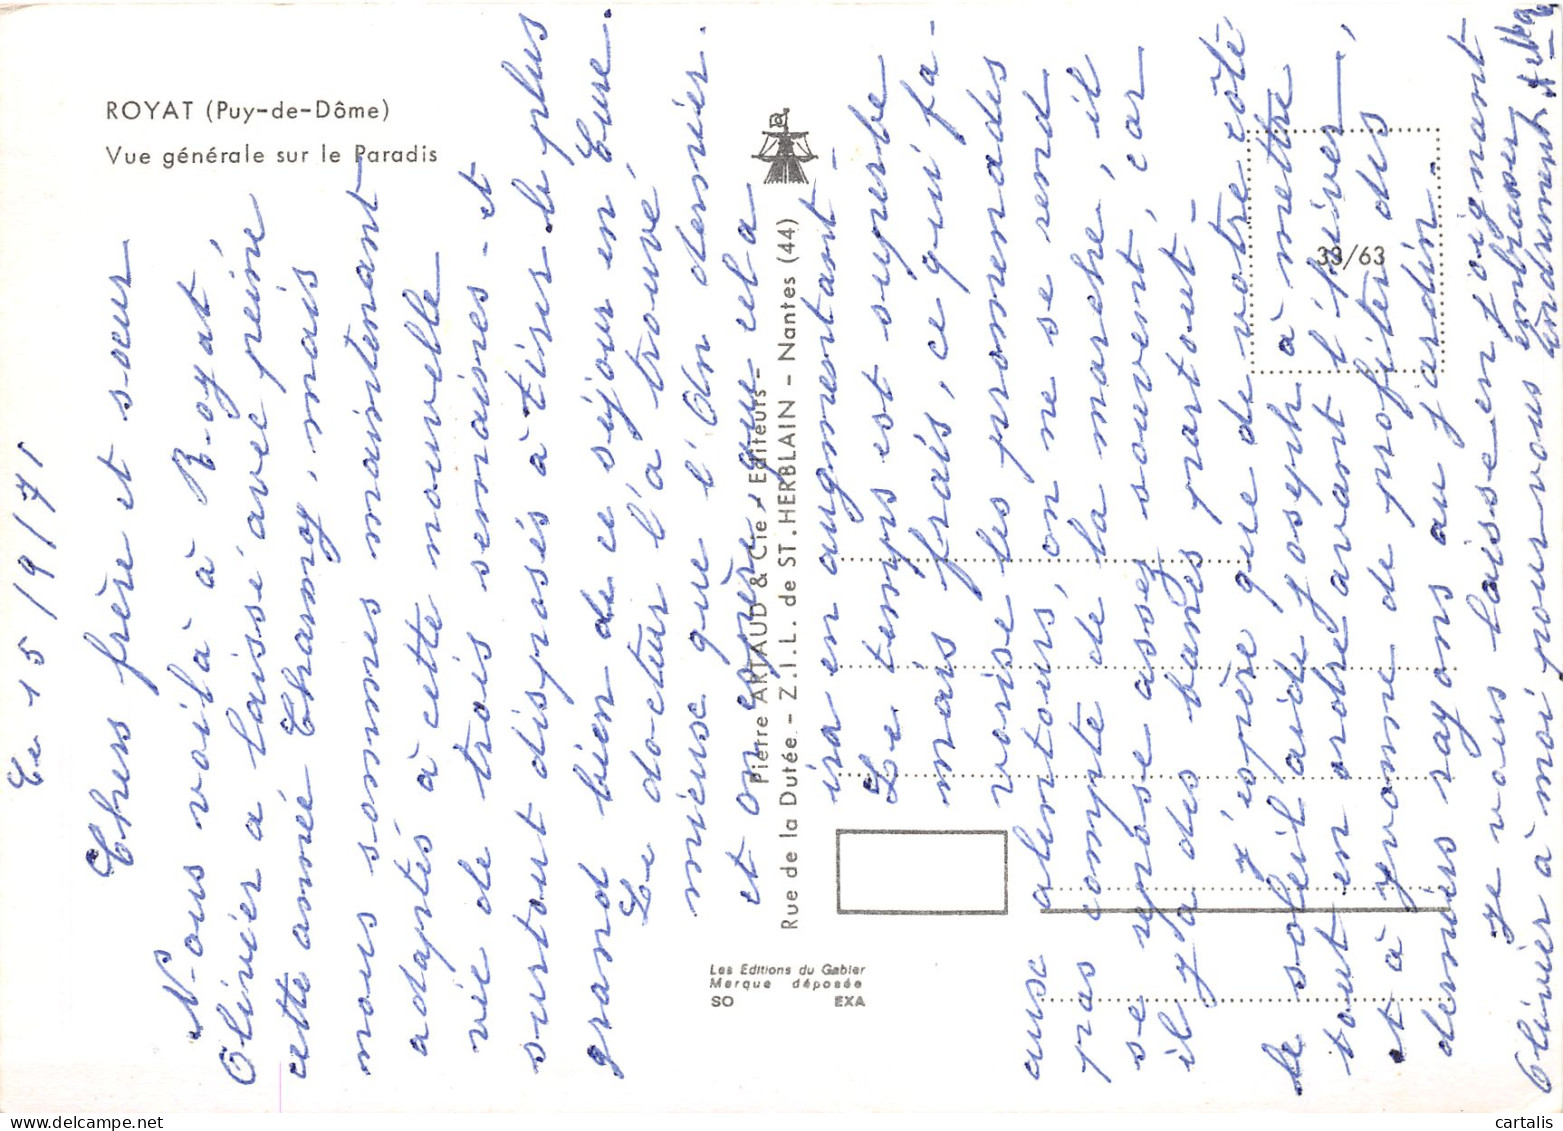 ROYAT (Puy-de-Dôme)
Vue générale sur le Paradis
Pierre ARTAUD & Cie - Editeurs -
Rue de la Dutée - Z.I.L. de ST. HERBLAIN - Nantes (44)
39/63
Les Editions du Gabier
Marque déposée
SO EXA
Le 15/9/71
Chers frère et soeur
Nous voilà à Royat,
Olivier a laissé avec peine
cette année Charnoy, mais
nous sommes maintenant
adaptés à cette nouvelle
vie de trois semaines - et
surtout disposés à tirer le plus
grand bien de ce séjour en Cure.
Le docteur l'a trouvé
mieux que l'an dernier.
et on espère que cela
ira en augmentant -
Le temps est superbe
mais frais, ce qui fa-
vorise les promenades
aux alentours, on ne se rend
pas compte de la marche, il
se repose assez souvent, car
il y a des bancs partout -
J'espère que de votre côté
le soleil aide Joseph à mettre
tout en ordre avant l'hiver,
et à Yvonne de profiter des
derniers rayons au jardin -
Je vous laisse en joignant
Olivier à moi pour vous embrasser
tendrement
cartalis